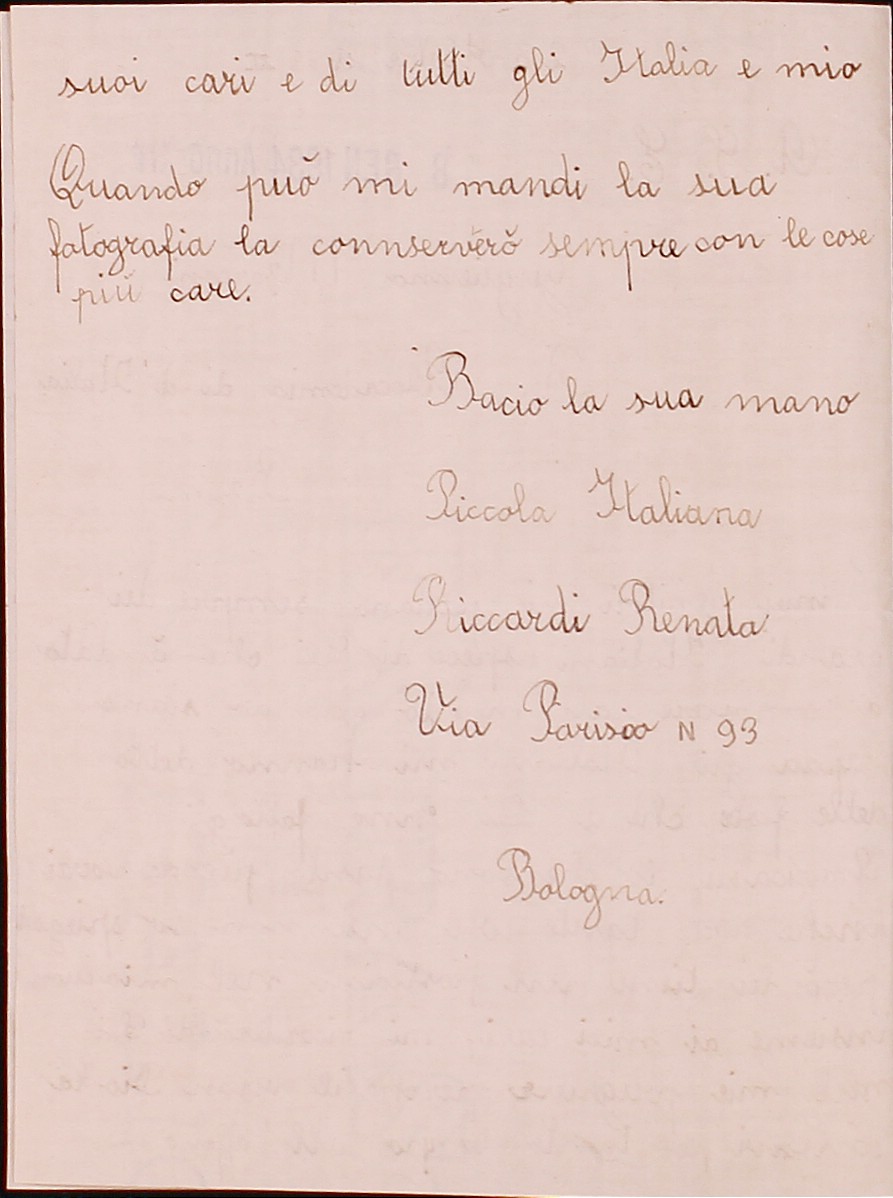 suoi cari e di tutti gli Italia e mio
Quando può mi mandi la sua
fotografia la connserverò sempre con le cose
più care.
Bacio la sua mano
Piccola Italiana
Riccardi Renata
Via Parisio N 93
Bologna.